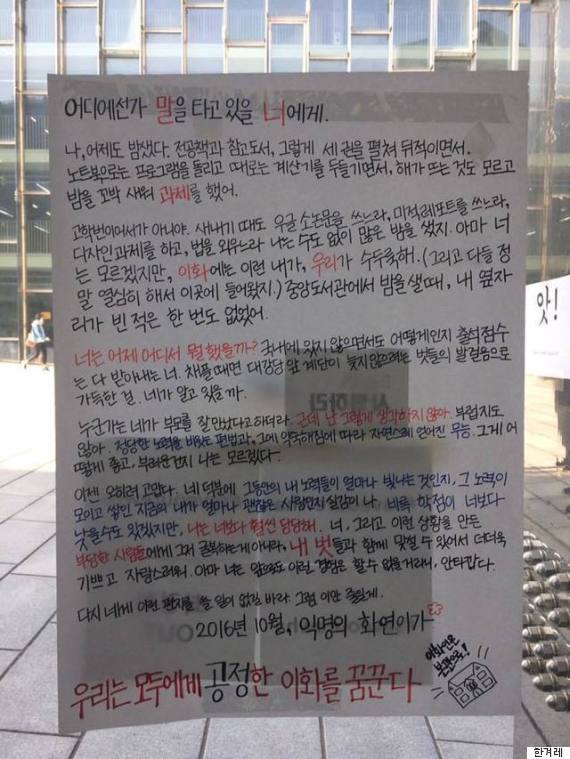 어디에선가 말을 타고 있을 너에게.
나, 어제도 밤샜다. 전공책과 참고도서, 그렇게 세 권을 펼쳐 뒤적이면서.
노트북으로는 프로그램을 돌리고 때로는 계산기를 두들기면서, 해가 뜨는 것도 모르고
밤을 꼬박 새워 과제를 했어.
고학번이어서가 아니야. 새내기 때도 우글 소논문을 쓰느라, 미적 레포트를 쓰느라,
디자인과제를 하고, 법을 외우느라 나는 수도 없이 많은 밤을 샜지. 아마 너
는 모르겠지만, 이화에는 이런 내가, 우리가 수두룩해. (그리고 다들 정
말 열심히 해서 이곳에 들어왔지.) 중앙도서관에서 밤을 샐 때, 내 옆자
리가 빈 적은 한 번도 없었어.
너는 어제 어디서 뭘 했을까? 국내에 있지 않으면서도 어떻게인지 출석점수
는 다 받아내는 너. 채플 때면 대강당 앞 계단이 늦지 않으려는 벗들의 발걸음으로
가득한 걸, 네가 알고 있을까.
누군가는 네가 부모를 잘 만났다고 하더라. 근데 난 그렇게 생각하지 않아. 부럽지도
않아. 정당한 노력을 비웃는 편법과, 그에 익숙해짐에 따라 자연스레 얻어진 무능. 그게 어
떻게 좋고, 부러운건지 나는 모르겠다.
이젠 오히려 고맙다. 네 덕분에 그동안의 내 노력들이 얼마나 빛나는 것인지, 그 노력이
모이고 쌓인 지금의 내가 얼마나 괜찮은 사람인지 실감이 나. 비록 학점이 너보다
낮을 수도 있겠지만, 나는 너보다 훨씬 당당해. 너, 그리고 이런 상황을 만든
부당한 사람들에게 그저 굴복하는게 아니라, 내 벗들과 함께 맞설 수 있어서 더더욱
기쁘고 자랑스러워. 아마 너는 앞으로도 이런 경험은 할 수 없을거라니, 안타깝다.
다시 네게 이런 편지를 쓸 일이 없길 바라. 그럼 이만 줄일게.
2016년 10월, 익명의 화연이가
우리는 모두에게 공정한 이화를 꿈꾼다
이화인은 본관으로!
앗!
한겨레